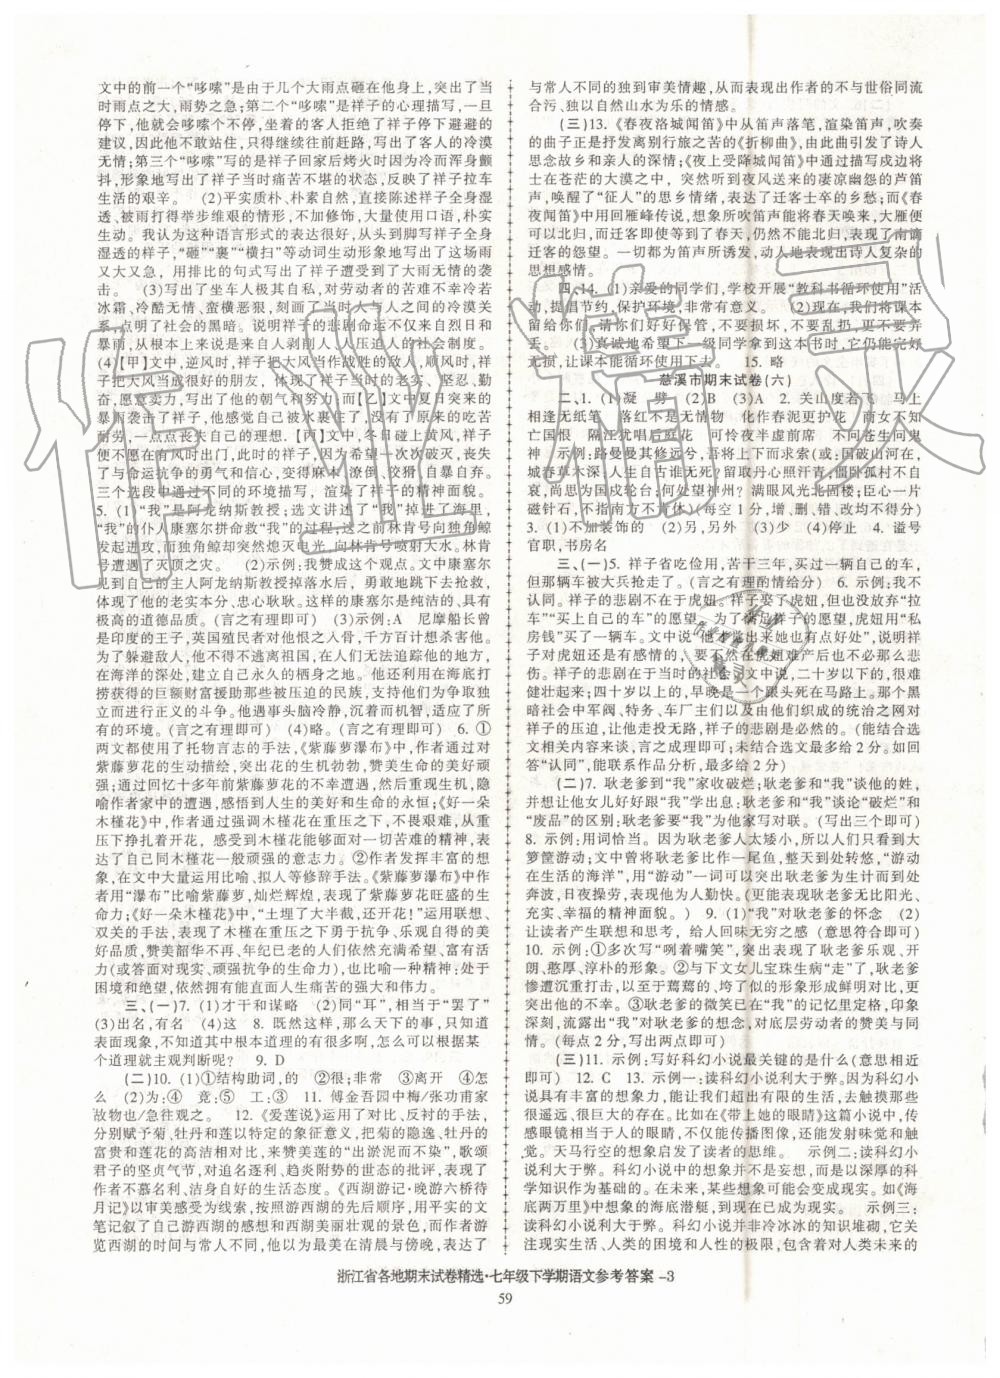 文中的前一个“哆嗦”是由于几个大雨点砸在他身上,突出了当
时雨点之大,雨势之急;第二个“哆嗦”是祥子的心理描写,一旦
停下,他就会哆嗦个不停,坐着的客人拒绝了祥子停下避避的
建议,因此他不敢站住,只得继续往前赶路。突出了客人的冷漠
无情;第三个“哆嗦”写的是祥子回家后烤火时因为冷而浑身颤
抖,形象地写出了祥子当时痛苦不堪的状态,反映了祥子拉车
生活的艰辛。 (2)平实质朴、朴素自然,直接陈述祥子全身湿
透、被雨打得举步维艰的情形,不加修饰,大量使用口语,朴实
生动。我认为这种语言形式的表达很好,从头到脚描写祥子全身
湿透的样子,“砸”“裹”“横扫”等动词生动形象地写出了这场雨
又大又急,用排比的句式写出了祥子遭受到了大雨无情的袭
击。 (3)写出了坐车人极其自私,对劳动者的苦难不幸冷若
冰霜、冷酷无情、蛮横恶狠,刻画了当时人与人之间的冷漠关
系,点明了社会的黑暗。说明祥子的悲剧命运不仅来自烈日和
暴雨,从根本上来说是来自人剥削人、人压迫人的社会制度。
(4)【甲】文中,逆风时,祥子把大风当作战胜的敌人;顺风时,祥
子把大风当成自己的好朋友,体现了当时祥子的老实、坚忍、勤
奋,写出了他的朝气和努力;而【乙】文中夏日突来的
暴雨袭击了祥子,他感觉自己被水裹住了,没有了原来的吃苦
耐劳,一点点丧失自己的理想。【丙】文中,冬日碰上黄风,祥子
便不愿在有风时出门,此时的祥子已经被一次次破灭,丧失了
与命运抗争的勇气和信心,变得麻木、潦倒、狡猾、自暴自弃。
三个选段中通过不同的环境描写,渲染了祥子的精神面貌。
5. (1)“我”是阿龙纳斯教授;选文讲述了“我”掉进了海里,
“我”的仆人康塞尔拼命救“我”的过程;这之前林肯号向独角鲸
发起进攻,而独角鲸却突然熄灭电光,向林肯号喷射大水。林肯
号遭遇了灭顶之灾。 (2)示例:我赞成这个观点。文中康塞尔
见到自己的主人阿龙纳斯教授掉落水后,勇敢地跳下去抢救,
体现了他的老实本分、忠心耿耿。这样的康塞尔是纯洁的、具有
极高的道德品质。(言之有理即可) (3)示例:A 尼摩船长曾
是印度的王子,英国殖民者对他恨之入骨,千方百计想害死他。
为了躲避敌人,他不得不逃离祖国,在人们无法追踪他的地方,
在海洋的深处,建立自己永久的栖身之地。他还利用在海底打
捞获得的巨额财富援助那些被压迫的民族,支持他们为争取独
立而进行正义的斗争。他遇事头脑冷静,沉着而机智,适应了所
有的环境。(言之有理即可) (4)略。(言之有理即可) 6. ①
两文都使用了托物言志的手法,《紫藤萝瀑布》中,作者通过对
紫藤萝花的生动描绘,突出花的生机勃勃,赞美生命的美好顽
强;通过回忆十多年前紫藤萝花的不幸遭遇,由花想到人,隐
喻作者家中的遭遇,感悟到人生的美好和生命的永恒;《好一朵
木槿花》中,作者通过强调木槿花在重压之下,不畏艰难,从重
压下挣扎着开花,感受到木槿花能够面对一切苦难的精神,表
达了自己同木槿花一般顽强的意志力。②作者发挥丰富的想
象,在文中大量运用比喻、拟人等修辞手法。《紫藤萝瀑布》中作
者用“瀑布”比喻紫藤萝,灿烂辉煌,表现了紫藤萝花旺盛的生
命力;《好一朵木槿花》中,“土埋了大半截,还开花!”运用联想、
双关的手法,表现了木槿花在重压之下勇于抗争、乐观自得的美
好品质,赞美韶华不再、年纪已老的人们依然充满希望、富有活
力(或答面对现实、顽强抗争的生命力),也比喻一种精神:处于
困境和绝望,依然拥有能直面人生痛苦的强大和伟力。
三、(一)7. (1)才干和谋略 (2)同“耳”,相当于“罢了”
(3)出名,有名 (4)这 8. 既然这样,那么天下的事,只知道
表面现象,不知道其中根本道理的有很多啊,怎么可以根据某
个道理就主观判断呢? 9. D
(二)10. (1)①结构助词,的 ②很;非常 ③离开 ④怎
么 (2)①为:④ 竞:⑤ 工:③ 11. 傅金吾园中梅/张功甫家
故物也/急往观之。 12.《爱莲说》运用了对比、反衬的手法,
分别赋予菊、牡丹和莲以特定的象征意义,把菊的隐逸、牡丹的
富贵和莲花的高洁相对比,来赞美莲的“出淤泥而不染”,歌颂
君子的坚贞气节,对追名逐利、趋炎附势的世态的批评,表现了
作者不慕名利、洁身自好的生活态度。《西湖游记·晚游六桥待
月记》以审美感受为线索,按照游西湖的先后顺序,用平实的文
笔记叙了自己游西湖的感想和西湖美丽壮观的景色,而作者游
览西湖的时间与常人不同,他以为最美在清晨与傍晚,表达了
与常人不同的独到审美情趣,从而表现出作者的不与世俗同流
合污、独以自然山水为乐的情感。
(三)13.《春夜洛城闻笛》中从笛声落笔,渲染笛声,吹奏
的曲子正是抒发离别行旅之苦的《折柳曲》,由此曲引发了诗人
思念故乡和亲人的深情;《夜上受降城闻笛》中通过描写戍边将
士在苍茫的大漠之中,突然听到夜风送来的凄凉幽怨的芦笛
声,唤起了“征人”的思乡情绪,表达了士卒的乡愁;而《春
夜闻笛》中用回雁峰传说,想象所吹笛声能将春天唤来,大雁便
可以北归,而迁客即使等到了春天,仍然不能北归,表现了南谪
迁客的怨望。一切都为笛声所诱发,动人地表现出诗人复杂的
思想感情。
四、14. (1)亲爱的同学们,学校开展“教科书循环使用”活
动,提倡节约,保护环境,非常有意义。 (2)现在,我们将课本
留给你们,请你们好好保管,不要损坏,不要乱扔,更不要弄
丢。 (3)真诚地希望下一级同学拿到这本书时,它仍能完好
无损,让课本能循环使用下去。 15. 略
慈溪市期末试卷(六)
二、1. (1)凝 劈 (2)B (3)A 2. 关山度若飞 马上
相逢无纸笔 落红不是无情物 化作春泥更护花 商女不知
亡国恨 隔江犹唱后庭花 可怜夜半虚前席 不问苍生问鬼
神 示例:路曼曼其修远兮,吾将上下而求索;(或:国破山河在,
城春草木深;人生自古谁无死?留取丹心照汗青;僵卧孤村不自
哀,尚思为国戍轮台;何处望神州?满眼风光北固楼;臣心一片
磁针石,不指南方不肯休。)(每空1分,增、删、错、改均不得分)
3. (1)不加装饰的 (2)另,另外 (3)少 (4)停止 4. 谥号
官职,书房名
三、(一)5. 祥子省吃俭用,苦干三年,买过一辆自己的车,
但那辆车被大兵抢走了。(言之有理酌情给分) 6. 示例:我不
认同。祥子的悲剧不在于虎妞。祥子娶了虎妞,但也没放弃“拉
车”“买上自己的车”的愿望。为了祥子的愿望,虎妞用“私
房钱”买了一辆车。文中说“他觉出来她也有点好处”,说明祥
子对虎妞还是有感情的,要不然在虎妞难产后也不必那么悲
伤。祥子的悲剧在于当时的社会:文中说,二十岁以下的,很难
健壮起来;四十岁以上的,早晚是一个跟头死在马路上。那个黑
暗社会中军阀、特务、车厂主们以及由他们织成的统治之网对
祥子的压迫,让他走投无路,祥子的悲剧是必然的。(能结合选
文相关内容来谈,言之成理即可;未结合选文最多给2分。如回
答“认同”,能联系作品分析,最多给2分)
(二)7. 耿老爹到“我”家收破烂;耿老爹和“我”谈他的姓,
并想让他女儿好好跟“我”学出息;耿老爹和“我”谈论“破烂”和
“废品”的区别;耿老爹要“我”为他家写对联。(写出三个即可)
8. 示例:用词恰当。因为耿老爹人太矮小,所以人们只看到大
箩筐游动;文中将耿老爹比作一尾鱼,整天到处转悠,“游动
在生活的海洋”,用“游动”一词可以突出耿老爹为生计而到处
奔波,日夜操劳,表现他为人勤快。(更能表现耿老爹无比阳光、
充实、幸福的精神面貌。) 9. (1)“我”对耿老爹的怀念 (2)
让读者产生联想和思考,给人回味无穷之感(意思符合即可)
10. 示例:①多次写“咧着嘴笑”,突出表现了耿老爹乐观、开
朗、憨厚、淳朴的形象。②与下文女儿宝珠生病“走”了,耿老爹
惨遭不幸的打击,以至于蔫蔫的、垮了的形象形成鲜明对比,更
突出他的不幸。③耿老爹的微笑已在“我”的记忆里定格,印象
深刻,流露出“我”对耿老爹的想念,对底层劳动者的赞美与同
情。(每点2分,写出两点即可)
(三)11. 示例:写好科幻小说最关键的是什么(意思相近
即可) 12. C 13. 示例一:读科幻小说利大于弊。因为科幻小
说具有丰富的想象力,能让我们超出有限的世界,去触摸那些
很遥远、很巨大的存在。比如在《带上她的眼睛》这篇小说中,传
感眼镜相当于人的眼睛,不仅能传播图像,还能发射味觉和触
觉。天马行空的想象启发了读者的思维。 示例二:读科幻
小说利大于弊。科幻小说中的想象并不是妄想,而是以深厚的科
学作为基础的。在未来,某些想象可能会变成现实。如《海
底两万里》中想象的海底潜艇,到现在已成为现实。 示例三:
读科幻小说利大于弊。科幻小说并非冷冰冰的知识堆砌,它关
注现实生活、人类的困境和人性的极限,包含着对人类未来的
浙江省各地期末试卷精选·七年级下学期语文参考答案 -3
59
作业精灵